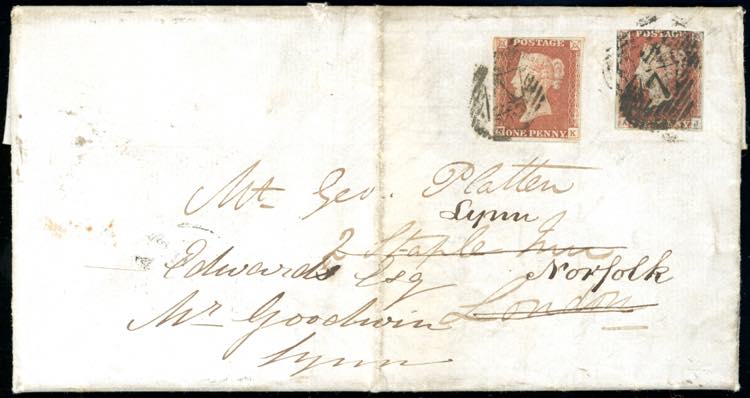 POSTAGE
ONE PENNY
K
POSTAGE
7
Mr Geo. Platten
Lynn
2 Staple Inn
Edwards Esq
Norfolk
London
Mr Goodwin
Lynn